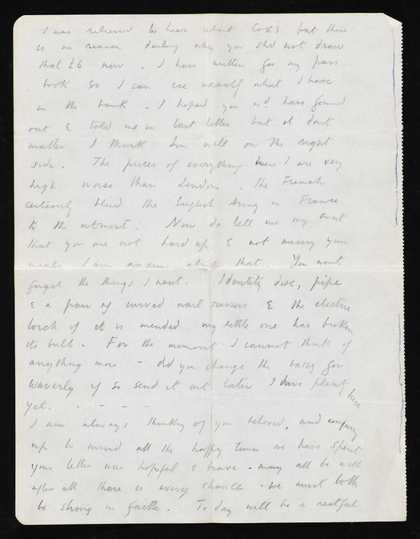 I was relieved to hear about Cox's but there
is no reason darling why you shd not draw
that £6 now. I have written for my pass
book so I can see myself what I have
in the bank. I hoped you wd have found
out & told me in last letter but it dont
matter I think I'm well on the right
side. The prices of everything here are very
high worse than London. The French
certainly bleed the English Army in France
to the utmost. Now do tell me my
that you are not hard up & not missing your
meals I am that. You wont
forget the things I want. Identity disc, pipe
& a pair of curved nail scissors & the electric
torch if it is mended my little one has broken
its bulb. For the moment I cannot think of
anything more – did you change the for
Waverly if so send it out later I have plenty here
yet. - - - -
I am always thinking of you beloved, and conjuring
up to mind all the happy times we have spent
your letter was hopeful & brave - may all be well
after all there is every chance - we must both
be strong in faith. Today will be a restful